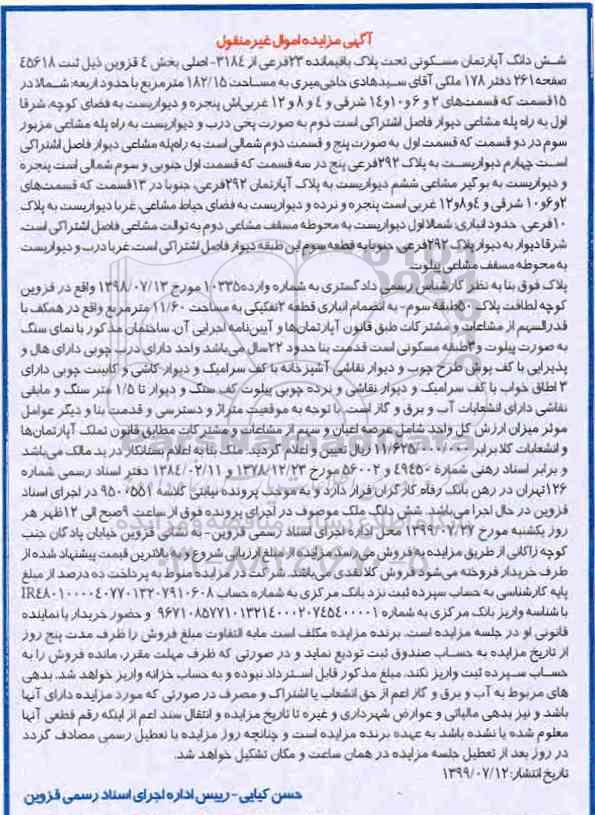 آگهی مزایده اموال غیرمنقول
شش دانگ آپارتمان مسکونی تحت پلاک باقیمانده ۲۳فرعی از ۳۱۸۴- اصلی بخش ٤ قزوین ذیل ثبت ٤٥٦١٨
صفحه۲۶۱ دفتر ۱۷۸ ملکی آقای سیدهادی حاجی‌میری به مساحت ۱۸۲/۱۵ مترمربع با حدود اربعه: شمالا در
۱۵قسمت که قسمت‌های ۲ و ۶ و۱۰و۱۴ شرقی و ٤ و ۸ و ۱۲ غربی‌اش پنجره و دیواریست به فضای کوچه، شرقا
اول به راه پله مشاعی دیوار فاصل اشتراکی است دوم به صورت پخی درب و دیواریست به راه پله مشاعی مزبور
سوم در دو قسمت که قسمت اول به صورت پنج و قسمت دوم شمالی است به راه‌پله مشاعی دیوار فاصل اشتراکی
است چهارم دیواریست به پلاک ۲۹۲فرعی پنج در سه قسمت که قسمت اول جنوبی و سوم شمالی است پنجره
و دیواریست به بوگیر مشاعی ششم دیواریست به پلاک آپارتمان ۲۹۲فرعی، جنوبا در ۱۳قسمت که قسمت‌های
۲و۶و۱۰ شرقی و ٤و۸و۱۲ غربی است پنجره و نرده و دیواریست به فضای حیاط مشاعی، غربا دیواریست به پلاک
۱۰فرعی. حدود انباری: شمالا اول دیواریست به محوطه مسقف مشاعی دوم به توالت مشاعی فاصل اشتراکی است،
شرقا دیوار به دیوار پلاک ۲۹۲فرعی، جنوبا به قطعه سوم این طبقه دیوار فاصل اشتراکی است، غربا درب و دیواریست
به محوطه مسقف مشاعی پیلوت.
پلاک فوق بنا به نظر کارشناس رسمی دادگستری به شماره وارده۱۰۳۳۵ مورخ ۱۳۹۸/۰۷/۱۳ واقع در قزوین
کوچه لطافت پلاک ۵۰طبقه سوم- به انضمام انباری قطعه ۲تفکیکی به مساحت ۱۱/۶۰ مترمربع واقع در همکف با
قدرالسهم از مشاعات و مشترکات طبق قانون آپارتمان‌ها و آیین‌نامه اجرایی آن. ساختمان مذکور با نمای سنگ
به صورت پیلوت و۳طبقه مسکونی است قدمت بنا حدود ۲۲سال می‌باشد واحد دارای درب چوبی دارای هال و
پذیرایی با کف پوش طرح چوب و دیوار نقاشی آشپزخانه با کف سرامیک و دیوار کاشی و کابینت چوبی دارای
۳ اطاق خواب با کف سرامیک و دیوار نقاشی و نرده چوبی پیلوت کف سنگ و دیوار تا ۱/۵ متر سنگ و مابقی
نقاشی دارای انشعابات آب و برق و گاز است. با توجه به موقعیت متراژ و دسترسی و قدمت بنا و دیگر عوامل
موثر میزان ارزش کل واحد شامل عرصه اعیان و سهم از مشاعات و مشترکات مطابق قانون تملک آپارتمان‌ها
و انشعابات کلا برابر ۱۱/۶۲۵/۰۰۰/۰۰۰ ریال تعیین و اعلام گردید. ملک بنا به اعلام بستانکار در ید مالک می‌باشد
و برابر اسناد رهنی شماره ٤٩٤٥٠ و ٥٦٠٠٢ مورخ ۱۳۷۸/۱۲/۲۳ و ۱۳۸۴/۰۲/۱۱ دفتر اسناد رسمی شماره
۱۲۶تهران در رهن بانک رفاه کارگران قرار دارد و به موجب پرونده نیابتی کلاسه ۹۵۰۰۵۵۱ در اجرای اسناد
قزوین در حال اجرا می‌باشد. شش دانگ ملک موصوف در اجرای پرونده فوق از ساعت ۹صبح الی ۱۲ظهر هر
روز یکشنبه مورخ ۱۳۹۹/۰۷/۲۷ محل اداره اجرای اسناد رسمی قزوین- به نشانی قزوین خیابان پادگان جنب
کوچه زاکانی از طریق مزایده به فروش می‌رسد مزایده از مبلغ ارزیابی شروع و به بالاترین قیمت پیشنهاد شده از
طرف خریدار فروخته می‌شود فروش کلا نقدی می‌باشد. شرکت در مزایده منوط به پرداخت ده درصد از مبلغ
پایه کارشناسی به حساب سپرده ثبت نزد بانک مرکزی به شماره حساب
با شناسه واریز بانک مرکزی به شماره و حضور خریدار یا نماینده
قانونی او در جلسه مزایده است. برنده مزایده مکلف است مابه التفاوت مبلغ فروش را ظرف مدت پنج روز
از تاریخ مزایده به حساب صندوق ثبت تودیع نماید و در صورتی که ظرف مهلت مقرر، مانده فروش را به
حساب سپرده ثبت واریز نکند، مبلغ مذکور قابل استرداد نبوده و به حساب خزانه واریز خواهد شد. بدهی
های مربوط به آب و برق و گاز اعم از حق انشعاب یا اشتراک و مصرف در صورتی که مورد مزایده دارای آنها
باشد و نیز بدهی مالیاتی و عوارض شهرداری و غیره تا تاریخ مزایده و انتقال سند اعم از اینکه رقم قطعی آنها
معلوم شده یا نشده باشد به عهده برنده مزایده است و چنانچه روز مزایده با تعطیل رسمی مصادف گردد
در روز بعد از تعطیل جلسه مزایده در همان ساعت و مکان تشکیل خواهد شد.
تاریخ انتشار: ۱۳۹۹/۰۷/۱۲
حسن کیایی- رییس اداره اجرای اسناد رسمی قزوین